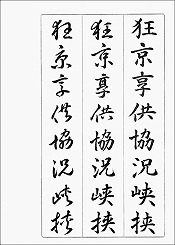 狂京享供協況峡挟
狂京享供協況峡挟
狂京享供協況峡挟